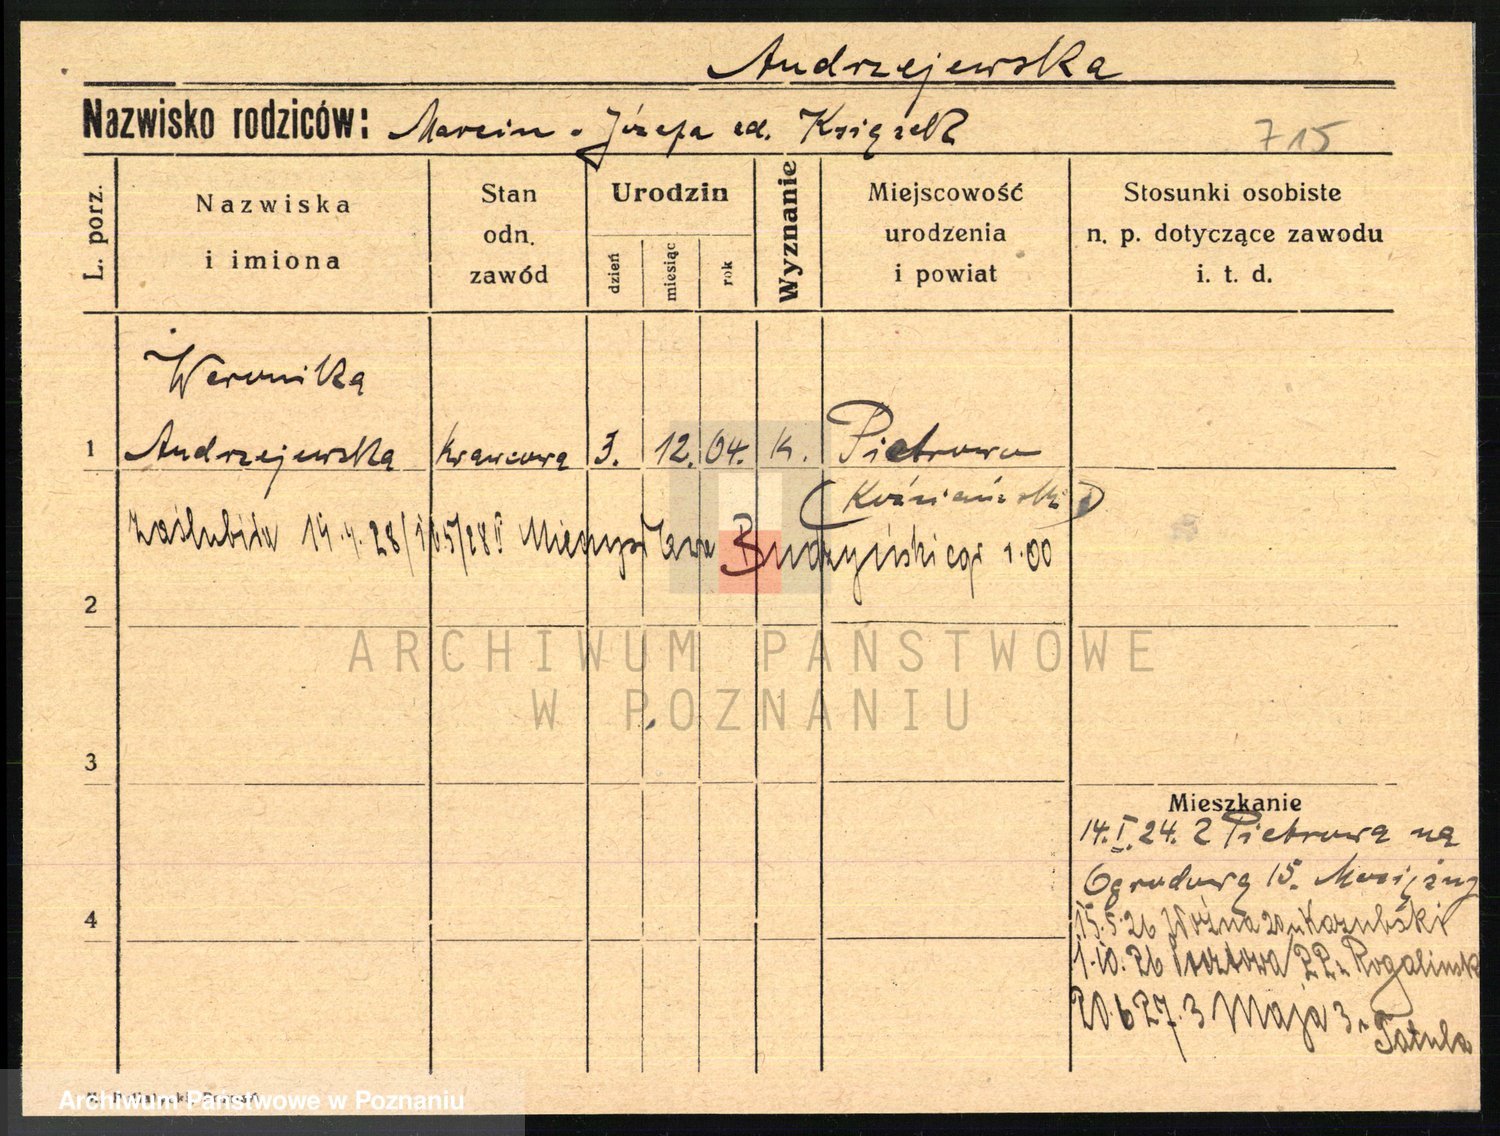 Andrzejewska
Nazwisko rodziców: Marcin - Józefa zd. Książek
715
L. porz.
Nazwiska
i imiona
Stan
odn.
zawód
Urodzin
dzień
miesiąc
rok
Wyznanie
Miejscowość
urodzenia
i powiat
Stosunki osobiste
n. p. dotyczące zawodu
i. t. d.
Weronika
1 Andrzejewska Krawcowa 3. 12. 04. K. Pietrowo
(Kościański)
zaślubiła 14.4.28/165/28 Mieczysława Budzyńskiego 1.00
2
3
4
ARCHIWUM PAŃSTWOWE
W POZNANIU
Mieszkanie
14.I.24. Z Pietrowa na
Ogrodową 15.
15.5.26 Woźna 20 u Kazubski
1.10.26 22 u Rogalinsk
20.6.27. 3 Maja 3 u Tatula
Poznań
Archiwum Państwowe w Poznaniu